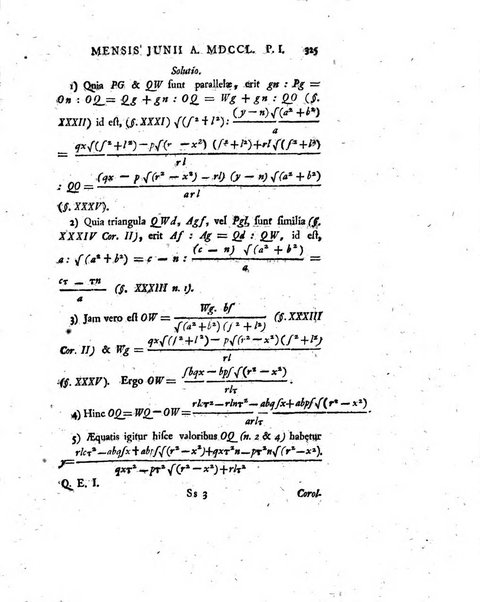 MENSIS JUNII A. MDCCL. P. I. 325
Solutio.
1) Quia PG & QW sunt parallelæ, erit gn : Pg =
On : OQ = Qg + gn : OQ = Wg + gn : QO (§.
XXXII) id est, (§. XXXI) √(f²+l²) : (y−n)√(a²+b²) / a
= qx√(f²+l²)−p√(r²−x²) (f²+l²)+rl√(f²+l²) / rl
: QO = (qx − p√(r²−x²) − rl) (y−n) √(a²+b²) / arl
(§. XXXV).
2) Quia triangula QWd, Agf, vel Pgl, sunt similia (§.
XXXIV Cor. II), erit Af : Ag = Qd : QW, id est,
a : √(a²+b²) = c − n : (c−n) √(a²+b²) / a
= cτ − τn / a (§. XXXIII n. 1).
3) Jam vero est OW = Wg. bf / √(a²+b²) (f²+l²) (§. XXXIII
Cor. II) & Wg = qx√(f²+l²)−p√(r²−x²)(f²+l²) / rl
(§. XXXV). Ergo OW = fbqx−bpf√(r²−x²) / rlτ.
4) Hinc OQ = WQ−OW = rlcτ²−rlnτ²−abqfx+abpf√(r²−x²) / arlτ.
5) Æquatis igitur hisce valoribus OQ (n. 2 & 4) habetur
y = rlcτ²−abqfx+abpf√(r²−x²)+qxτ²n−pτ²n√(r²−x²) / qxτ²−pτ²√(r²−x²)+rlτ².
Q. E. I.
Ss 3 Corol-